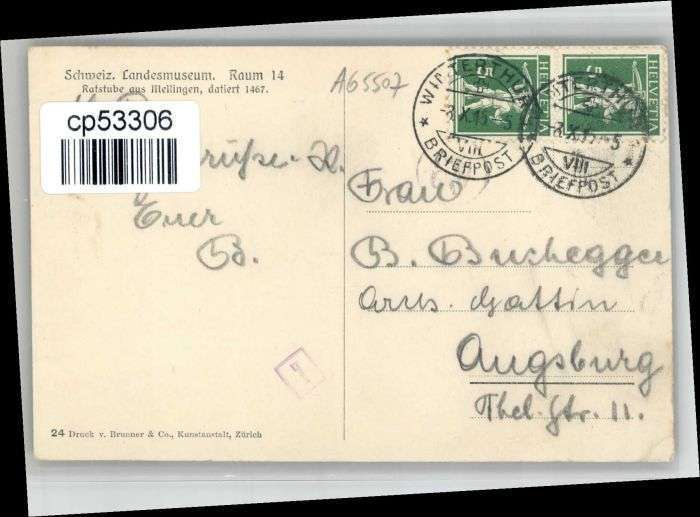 Schweiz. Landesmuseum. Raum 14
Ratstube aus Mellingen, datiert 1467.
A65507
cp53306
Euer
B.
WINTERTHUR
BRIEFPOST
VIII
5
HELVETIA
BRIEFPOST
VIII
5
HELVETIA
Frau
B. Buchegger
Augsburg
Str. 11.
24 Druck v. Brunner & Co., Kunstanstalt, Zürich